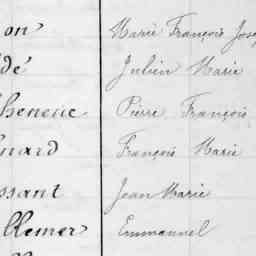 on Marie François Jose
dé Julien Marie
henene Pierre François
nard François Marie
ssant Jean Marie
llemer Emmanuel